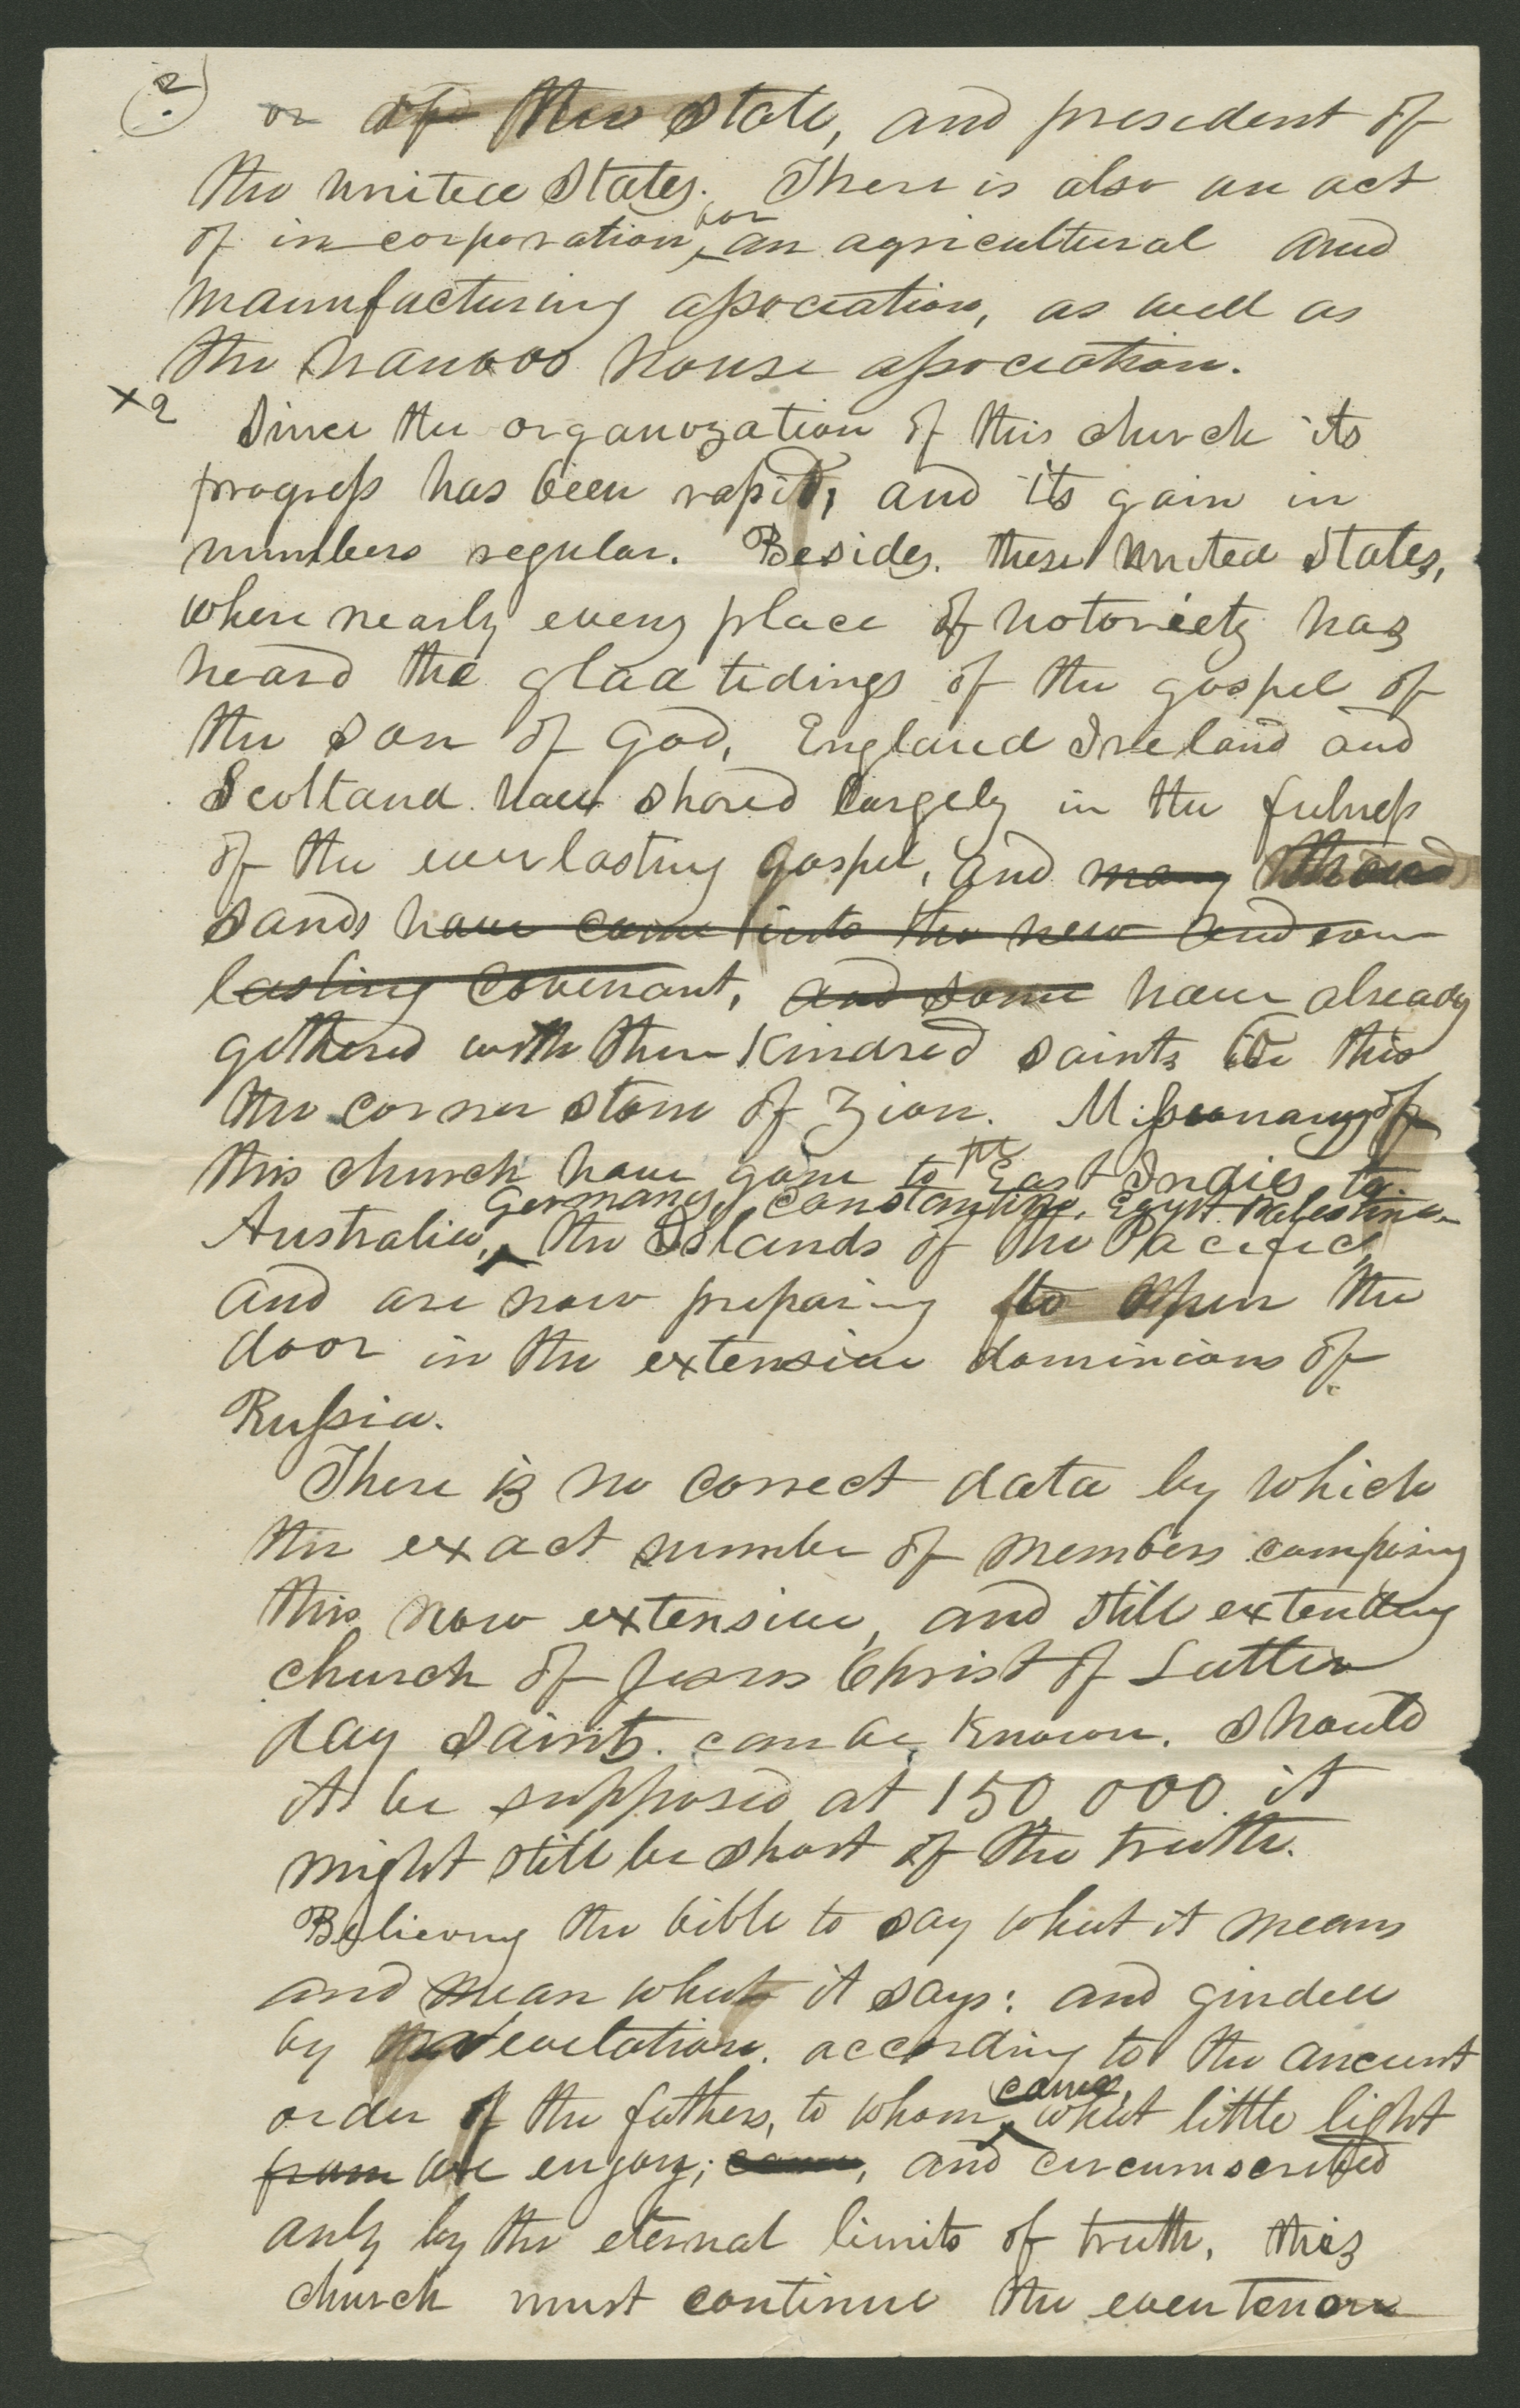 2
or of this State, and president of
the united States. There is also an act
of in-corporation, for an agricultural and
manufacturing association, as well as
the nauvoo house association.
x2 Since the organization of this church its
progress has been rapid, and its gain in
numbers regular. Besides these united States,
where nearly every place of notoriety has
heard the glad tidings of the gospel of
the son of God, England Ireland and
Scotland have shared largely in the fulness
of the everlasting gospel, and many thou
sands have come into the new and ever
lasting covenant, and some have already
gathered with their Kindred saints to this
the corner stone of Zion. Missionarys of
this church have gone to the East Indies, to
Germany, Constantinople, Egypt Palestine
Australia, the Islands of the Pacific,
and are now preparing to open the
door in the extensive dominions of
Russia.
There is no correct data by which
the exact number of members composing
this now extensive, and still extending
church of Jesus Christ of Latter
day saints can be Known. Should
it be supposed at 150,000. it
might still be short of the truth.
Believing the bible to say what it means
and mean what it says: and guided
by revelation. according to the ancient
came
order of the fathers, to whom what little light
from we enjoy; came, and circumscribed
only by the eternal limits of truth, this
church must continue the even tenor